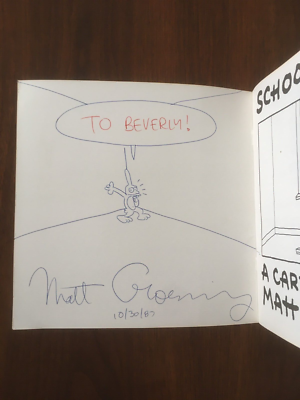 TO BEVERLY!
Matt Groening
10/30/87
SCHOO
A CAR
MATT